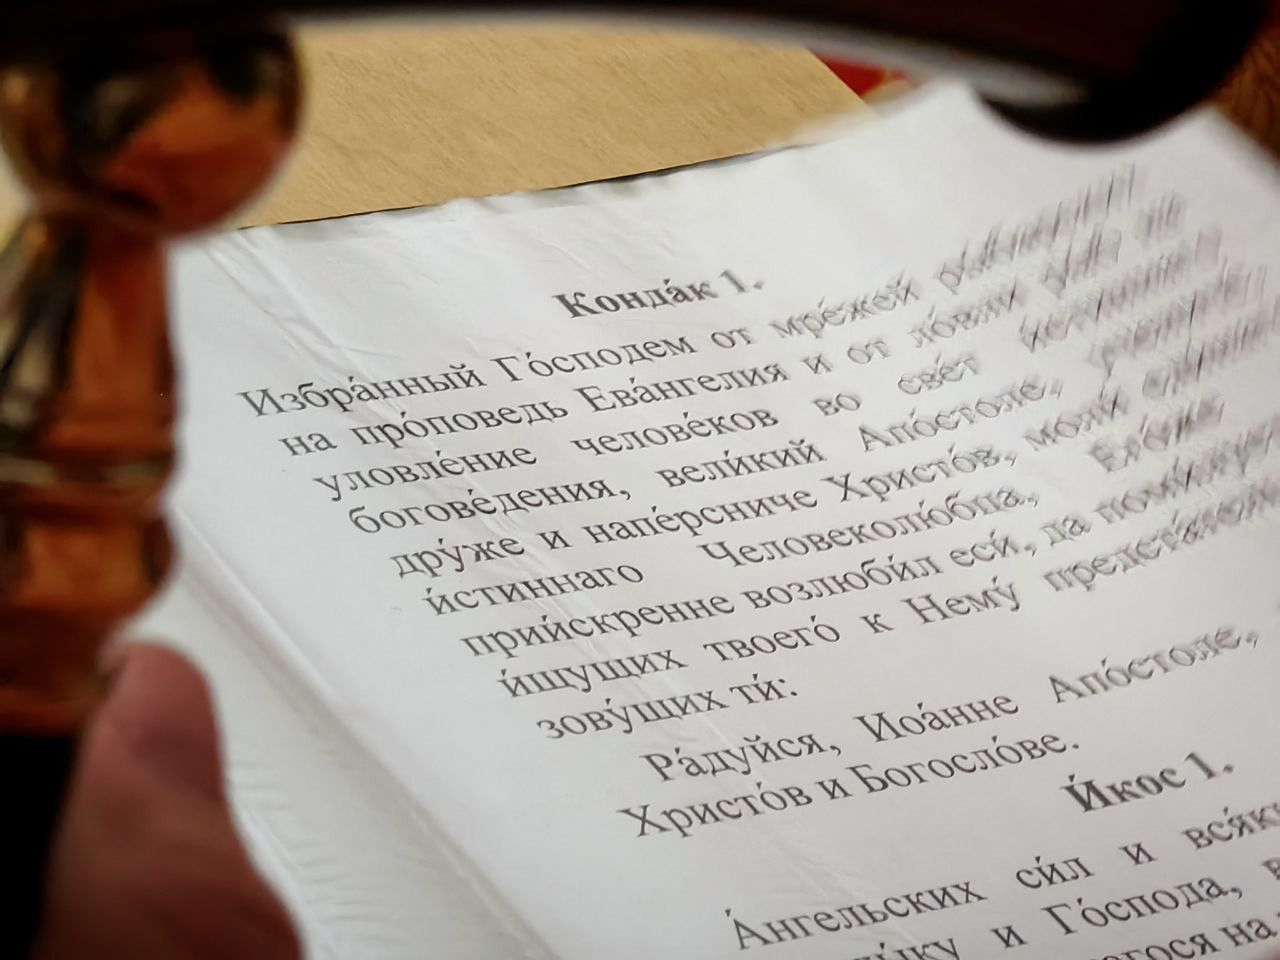 Конда́к 1.
Избра́нный Го́сподем от мре́жей
на про́поведь Ева́нгелия и от ло́вли рыб на
уловле́ние челове́ков во све́т и́стиннаго
богове́дения, вели́кий Апо́столе,
дру́же и напе́рсниче Христо́в, мо́ли
и́стиннаго Человеколю́бца, Его́же
прии́скренне возлюби́л еси́, да поми́лует
и́щущих твоего́ к Нему́
зову́щих ти́:
Ра́дуйся, Иоа́нне Апо́столе,
Христо́в и Богосло́ве.
И́кос 1.
А́нгельских си́л и
и Го́спода,
на